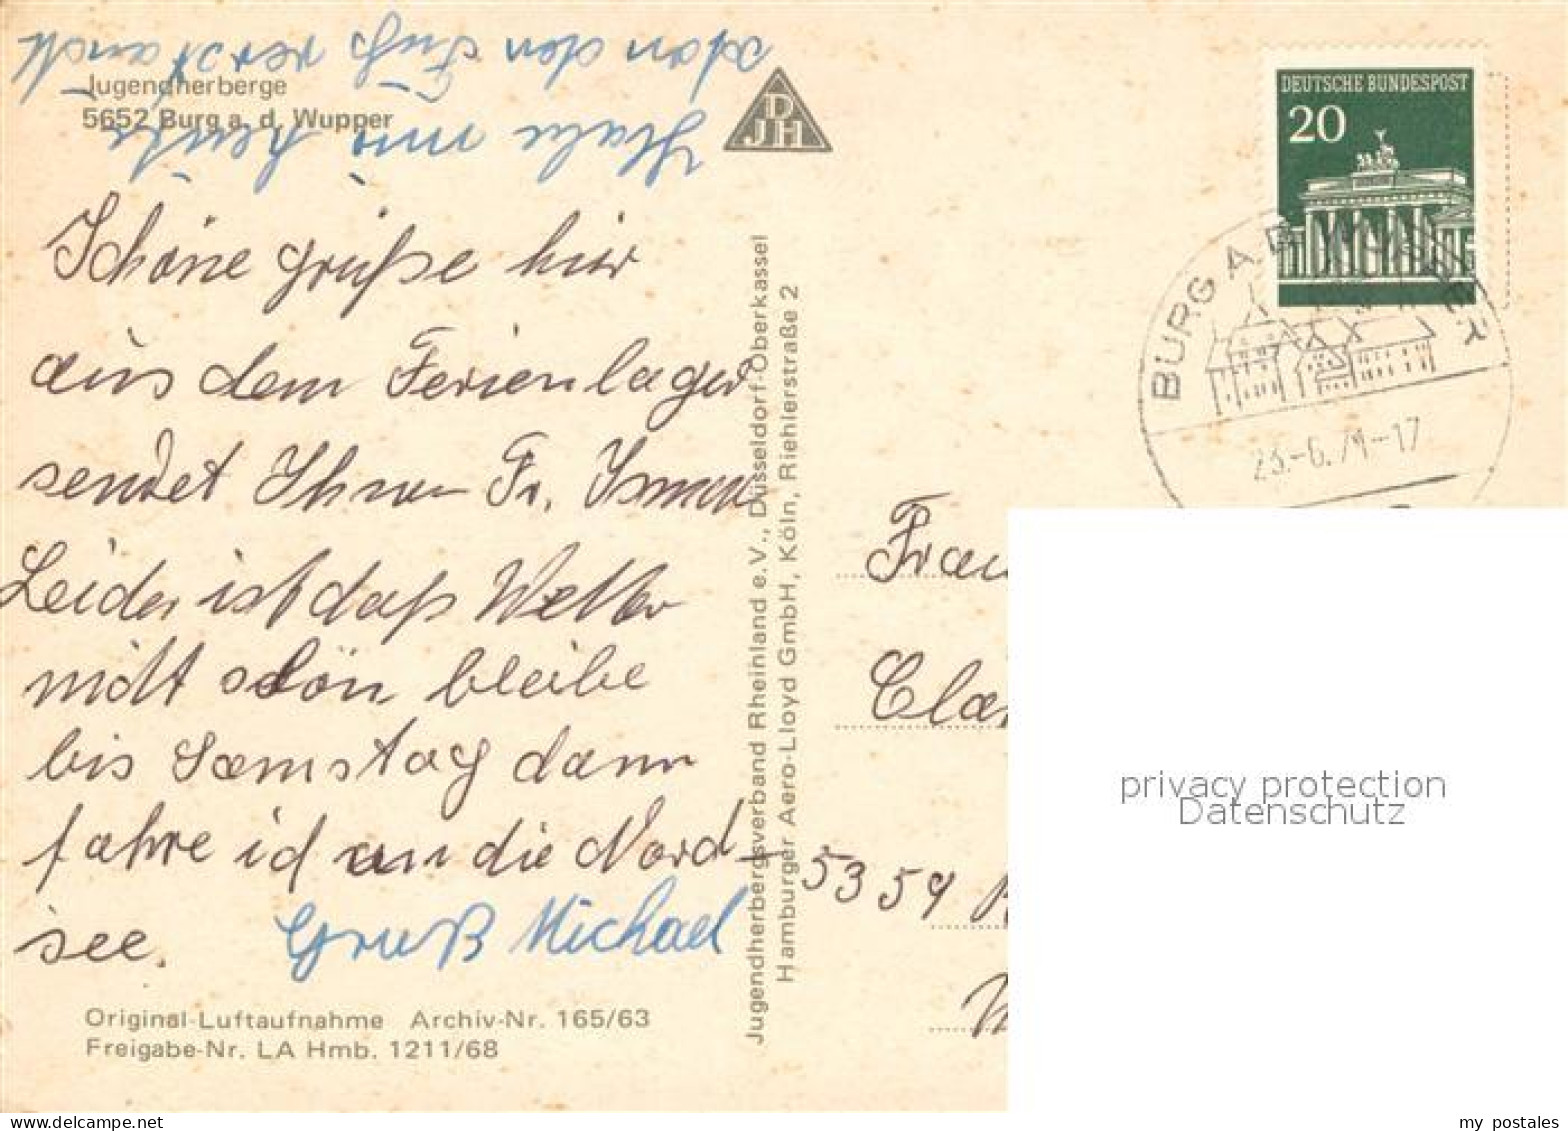 Jugendherberge
5652 Burg a. d. Wupper
DJH
DEUTSCHE BUNDESPOST
20
BURG A.D. WUPPER
23.-6.71-17
Schöne grüße hier
aus dem Ferienlager
sendet Ihnen Fr.
Leider ist daß Wetter
nicht schön bleibe
bis Samstag dann
fahre ich an die Nord-
see.
Gruß Michael
Habe mir heute
schon den Fuß verstaucht
Original-Luftaufnahme Archiv-Nr. 165/63
Freigabe-Nr. LA Hmb. 1211/68
Jugendherbergsverband Rheinland e.V., Düsseldorf-Oberkassel
Hamburger Aero-Lloyd GmbH, Köln, Riehlerstraße 2
Frau
5359
privacy protection
Datenschutz
my postales